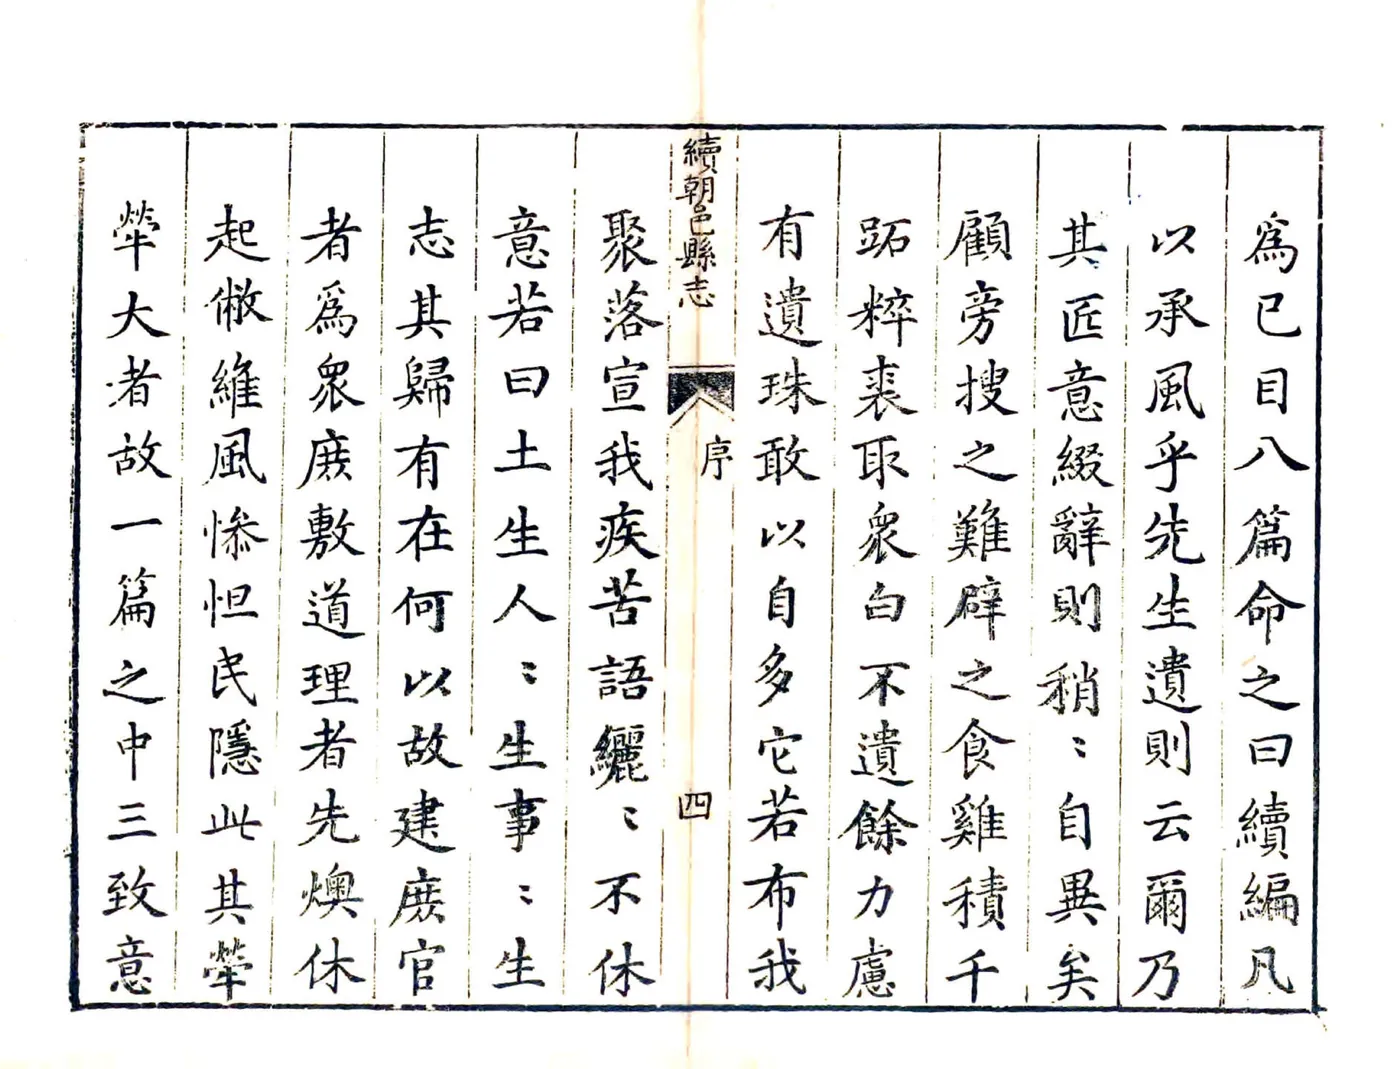 為已目八篇命之曰續編凡
以承風乎先生遺則云爾乃
其匠意綴辭則稍〻自異矣
顧旁搜之難辟之食雞積千
跖粹裘取眾白不遺餘力慮
有遺珠敢以自多它若布我
續朝邑縣志
序
四
聚落宣我疾苦語纚〻不休
意若曰土生人〻生事〻生
志其歸有在何以故建庶官
者爲眾庶敷道理者先燠休
起僌維風慘怛民隱此其犖
犖大者故一篇之中三致意